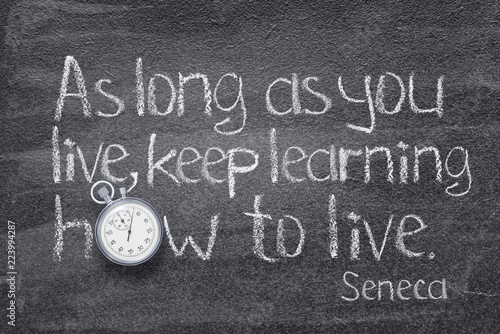 As long as you
live, keep learning
how to live.
Seneca
Adobe Stock | #223994287